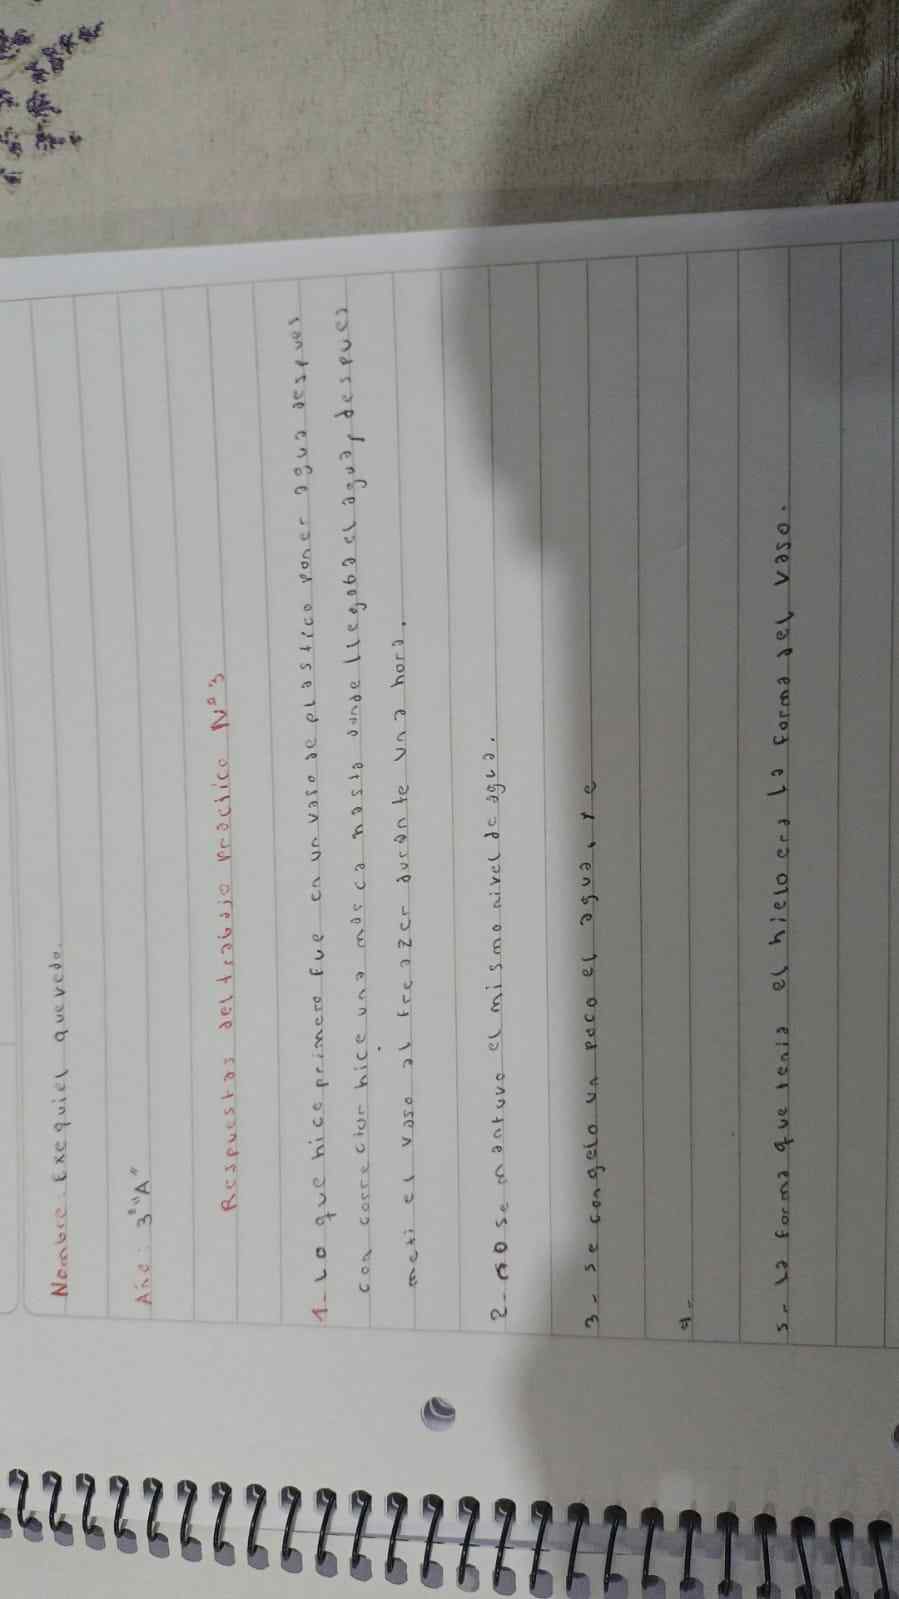 Nombre: Exequiel quevedo.
Año: 3°"A"
Respuestas del trabajo practico N°3
1- Lo que hice primero fue en un vaso de plastico poner agua despues
con corrector hice una marca hasta donde llegaba el agua, despues
meti el vaso al freazer durante una hora.
2- no se mantuvo el mismo nivel de agua.
3- se congelo un poco el agua, y e
4-
5- La forma que tenia el hielo era la forma del vaso.